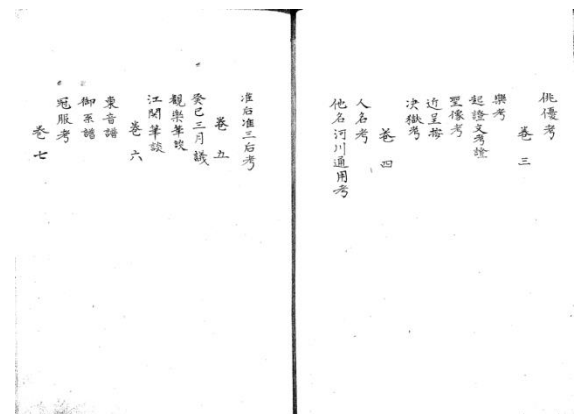 俳優考
巻三
樂考
起證文考證
聖像考
近呈帯
决獄考
巻四
人名考
他名河川通用考
准后准三后考
巻五
癸巳三月議
觀樂筆談
江関筆談
巻六
東音譜
御系譜
冠服考
巻七